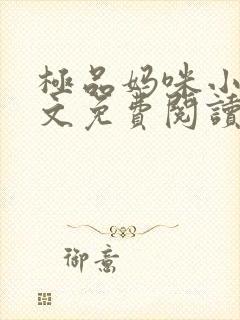 極品妈咪小
文免費閱讀
御意